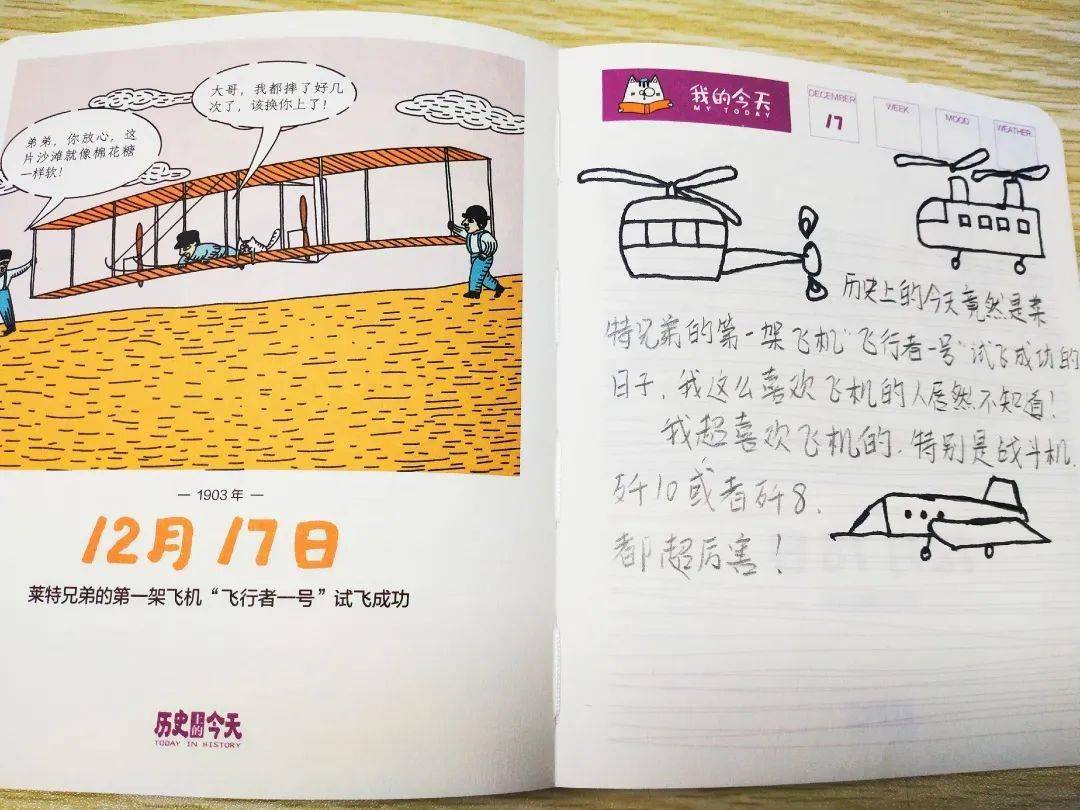 弟弟，你放心，这
片沙滩就像棉花糖
一样软！
大哥，我都摔了好几
次了，该换你上了！
— 1903 年 —
12月17日
莱特兄弟的第一架飞机“飞行者一号”试飞成功
历史上的今天
TODAY IN HISTORY
我的今天
MY TODAY
DECEMBER
17
WEEK
MOOD
WEATHER
历史上的今天竟然是莱
特兄弟的第一架飞机“飞行者一号”试飞成功的
日子，我这么喜欢飞机的人居然不知道！
我超喜欢飞机的，特别是战斗机，
歼10或者歼8，
都超厉害！